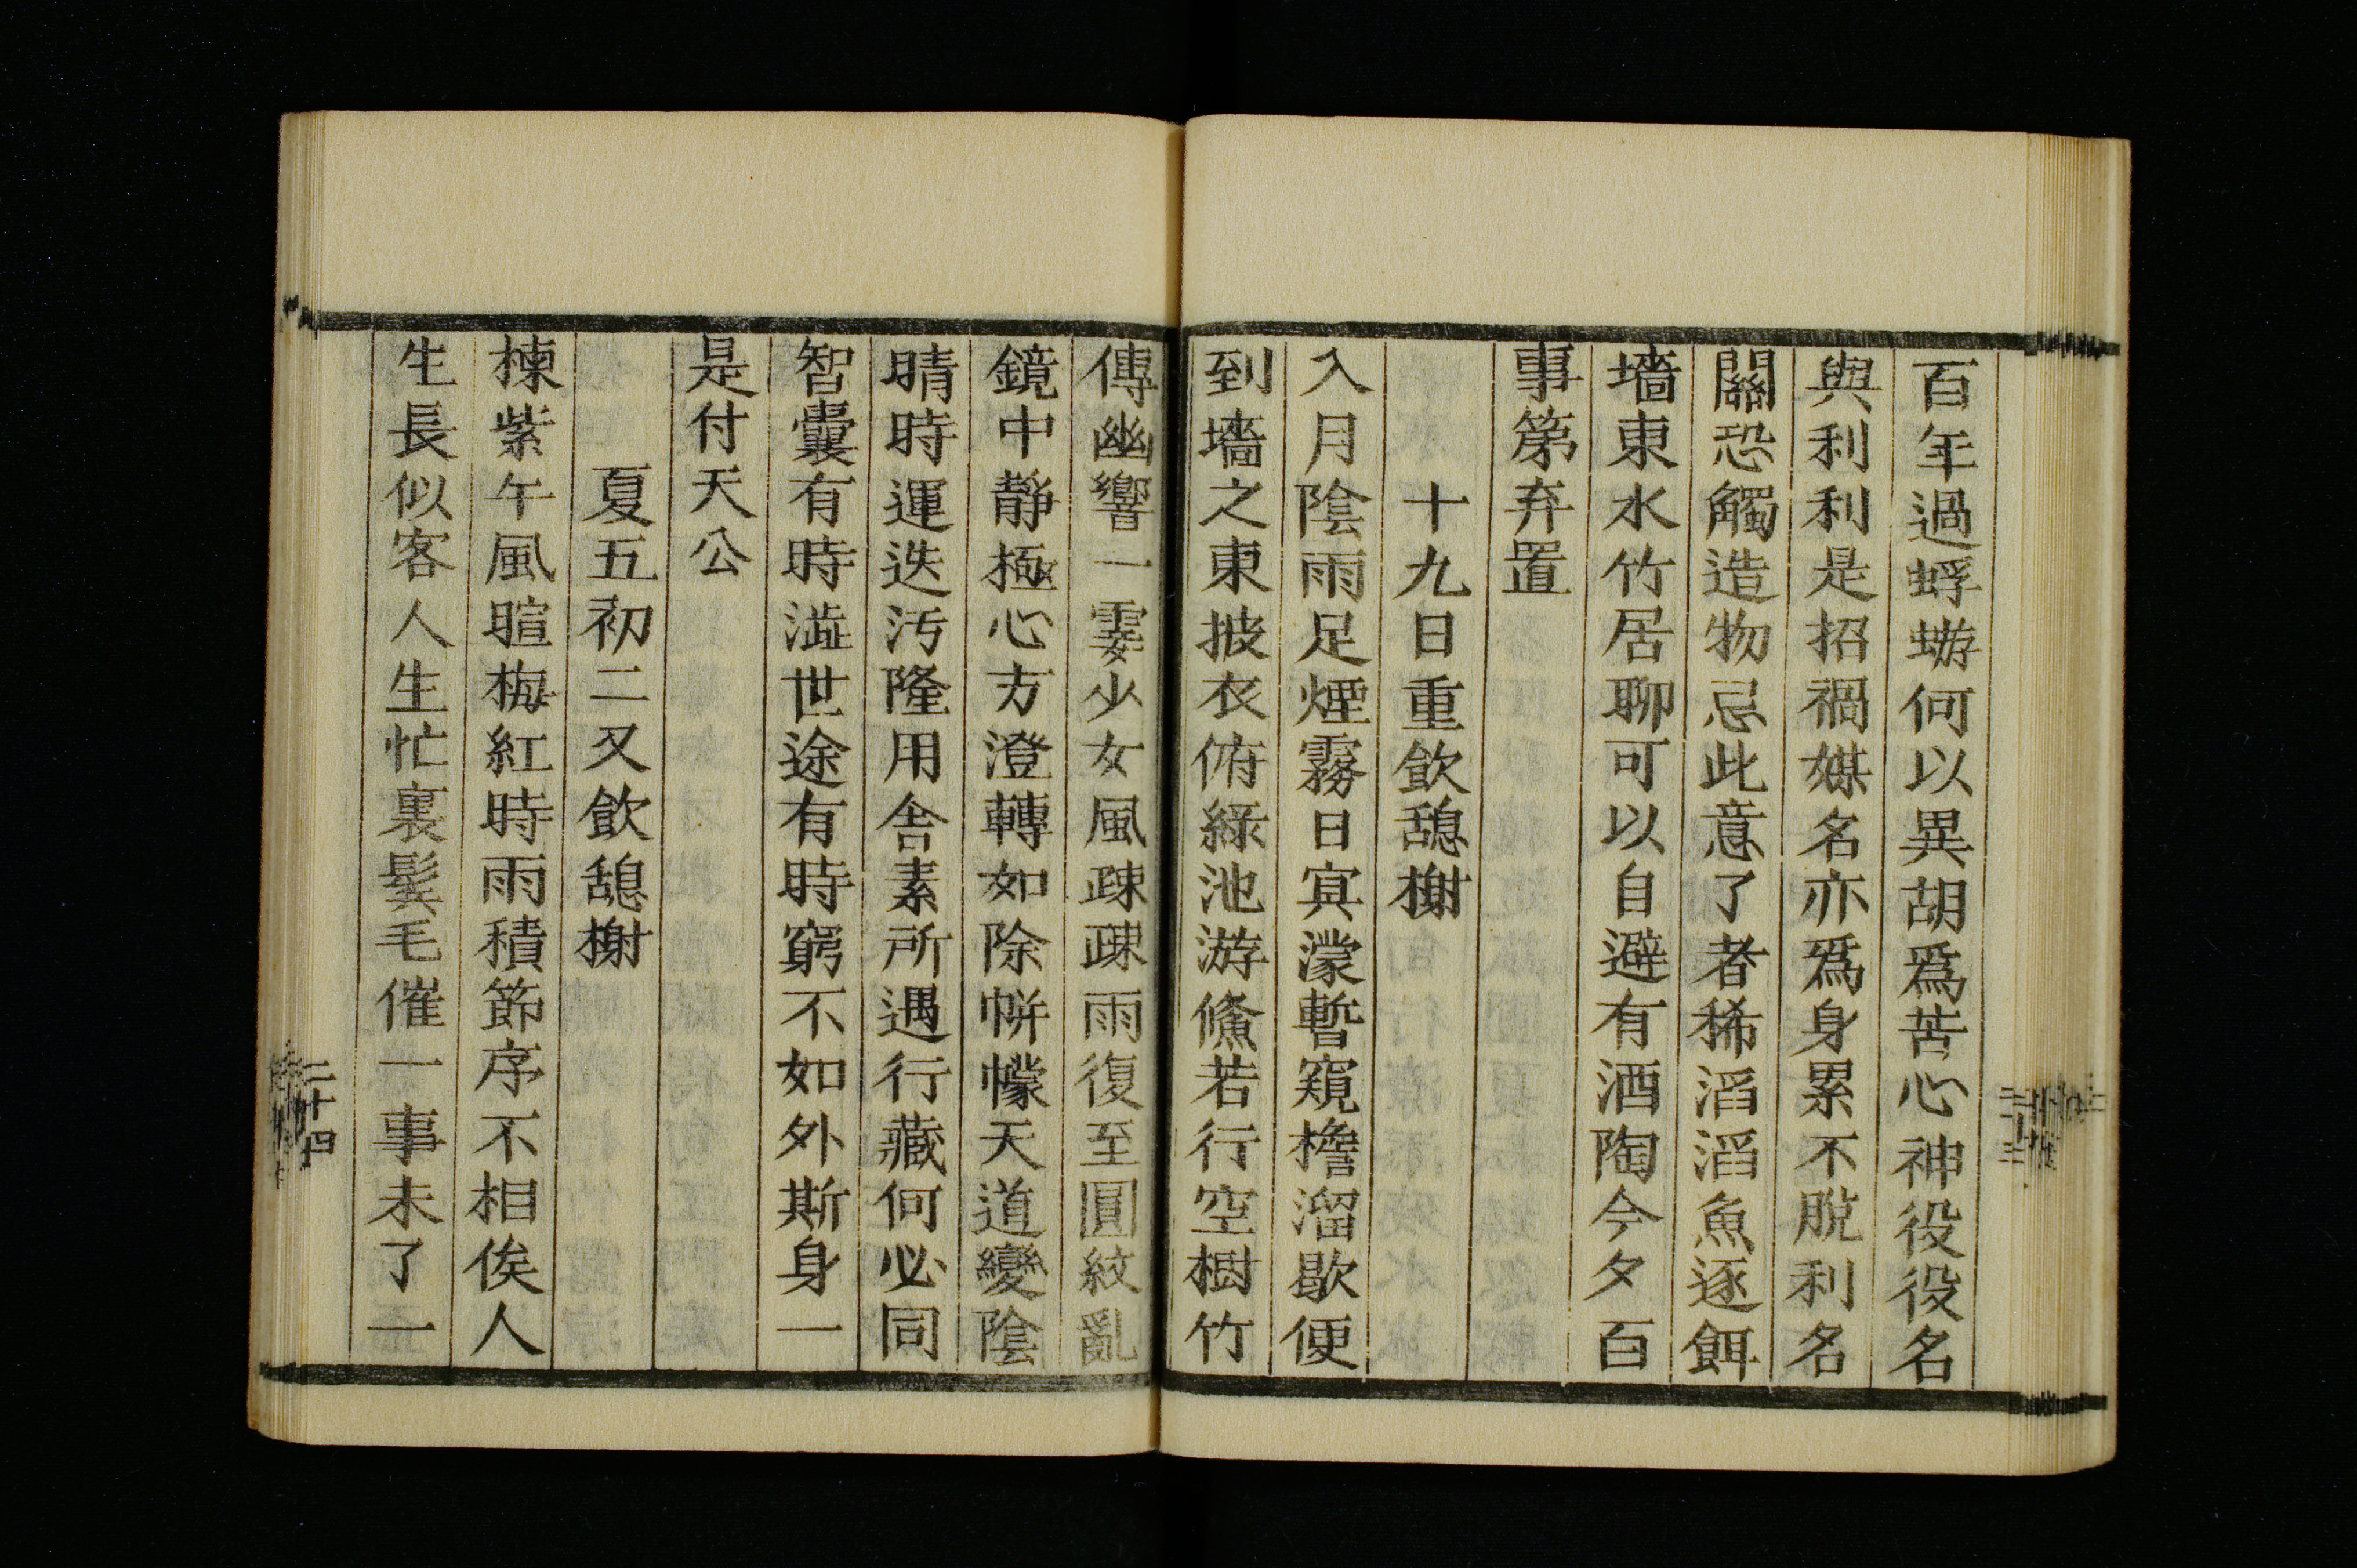 百年過蜉蝣何以異胡爲苦心神役役名
與利利是招禍媒名亦爲身累不脫利名
關恐觸造物忌此意了者稀滔滔魚逐餌
墻東水竹居聊可以自避有酒陶今夕百
事第弃置
十九日重飲憩榭
入月陰雨足煙霧日寘濛暫窺檐溜歇便
到墻之東披衣俯綠池游鯈若行空樹竹
傳幽響一霎少女風疎疎雨復至圓紋亂
鏡中靜極心方澄轉如除帡幪天道變陰
晴時運迭汚隆用舍素所遇行藏何必同
智囊有時澁世途有時窮不如外斯身一
是付天公
夏五初二又飲憩榭
楝紫午風暄梅紅時雨積節序不相俟人
生長似客人生忙裏鬓毛催一事未了一
二十四